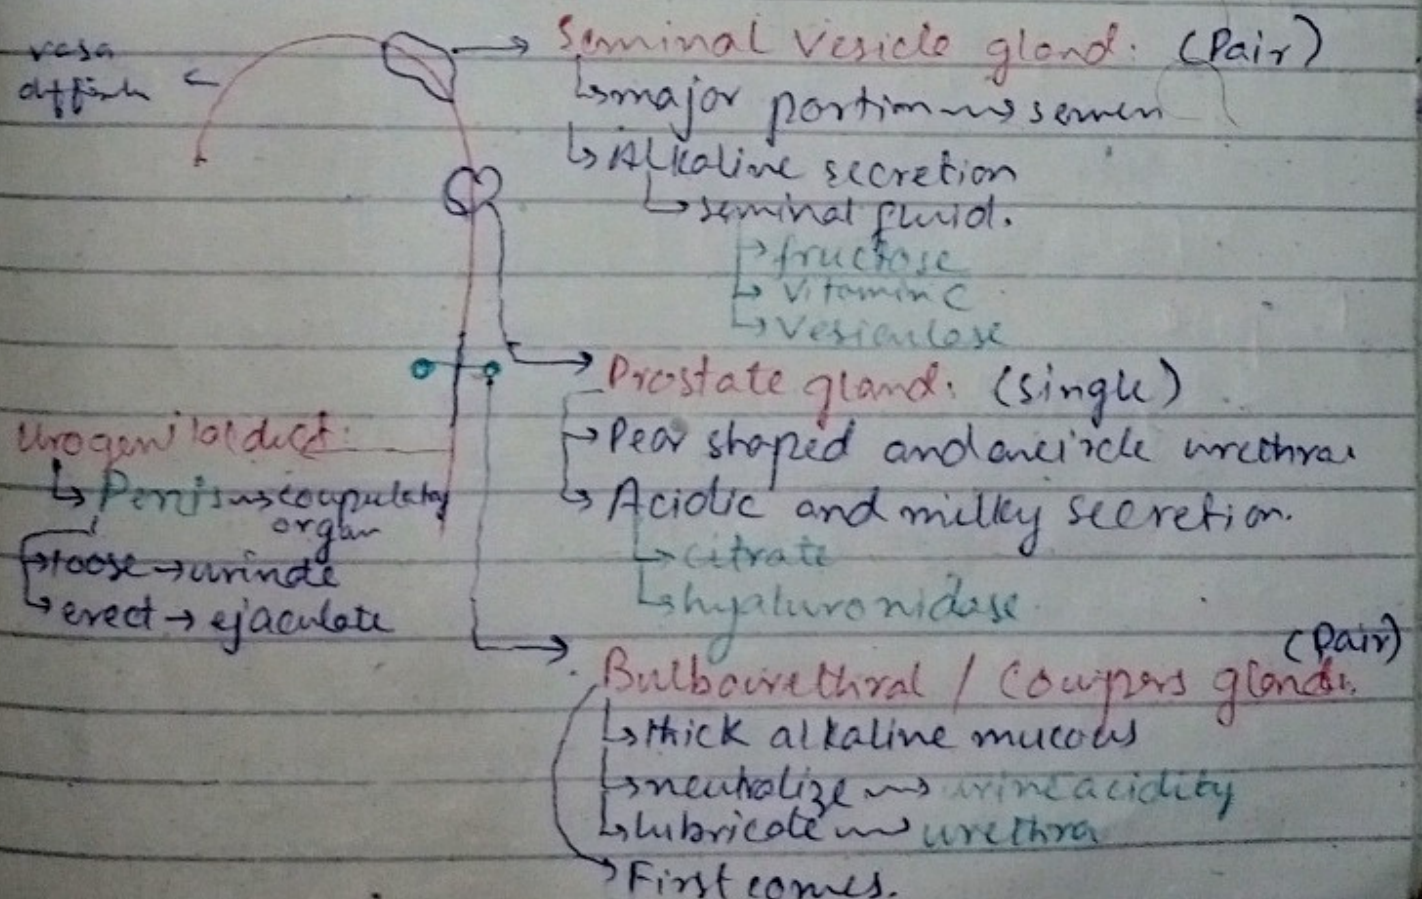 vasa
Seminal Vesicle gland. (Pair)
↳ major portion ⇝ semen
↳ Alkaline secretion
↳ seminal fluid.
↳ fructose
↳ Vitamin C
↳ Vesiculose
Prostate gland. (single)
→ Pear shaped and encircle urethra
↳ Acidic and milky secretion.
↳ citrate
↳ hyaluronidase
Urogenital duct
↳ Penis ⇝ coupulatory
organ
→ loose → urinate
↳ erect → ejaculate
(Pair)
Bulbourethral / Cowpers gland
↳ thick alkaline mucous
↳ neutralize ⇝ urine acidity
↳ lubricate ⇝ urethra
→ First comes.